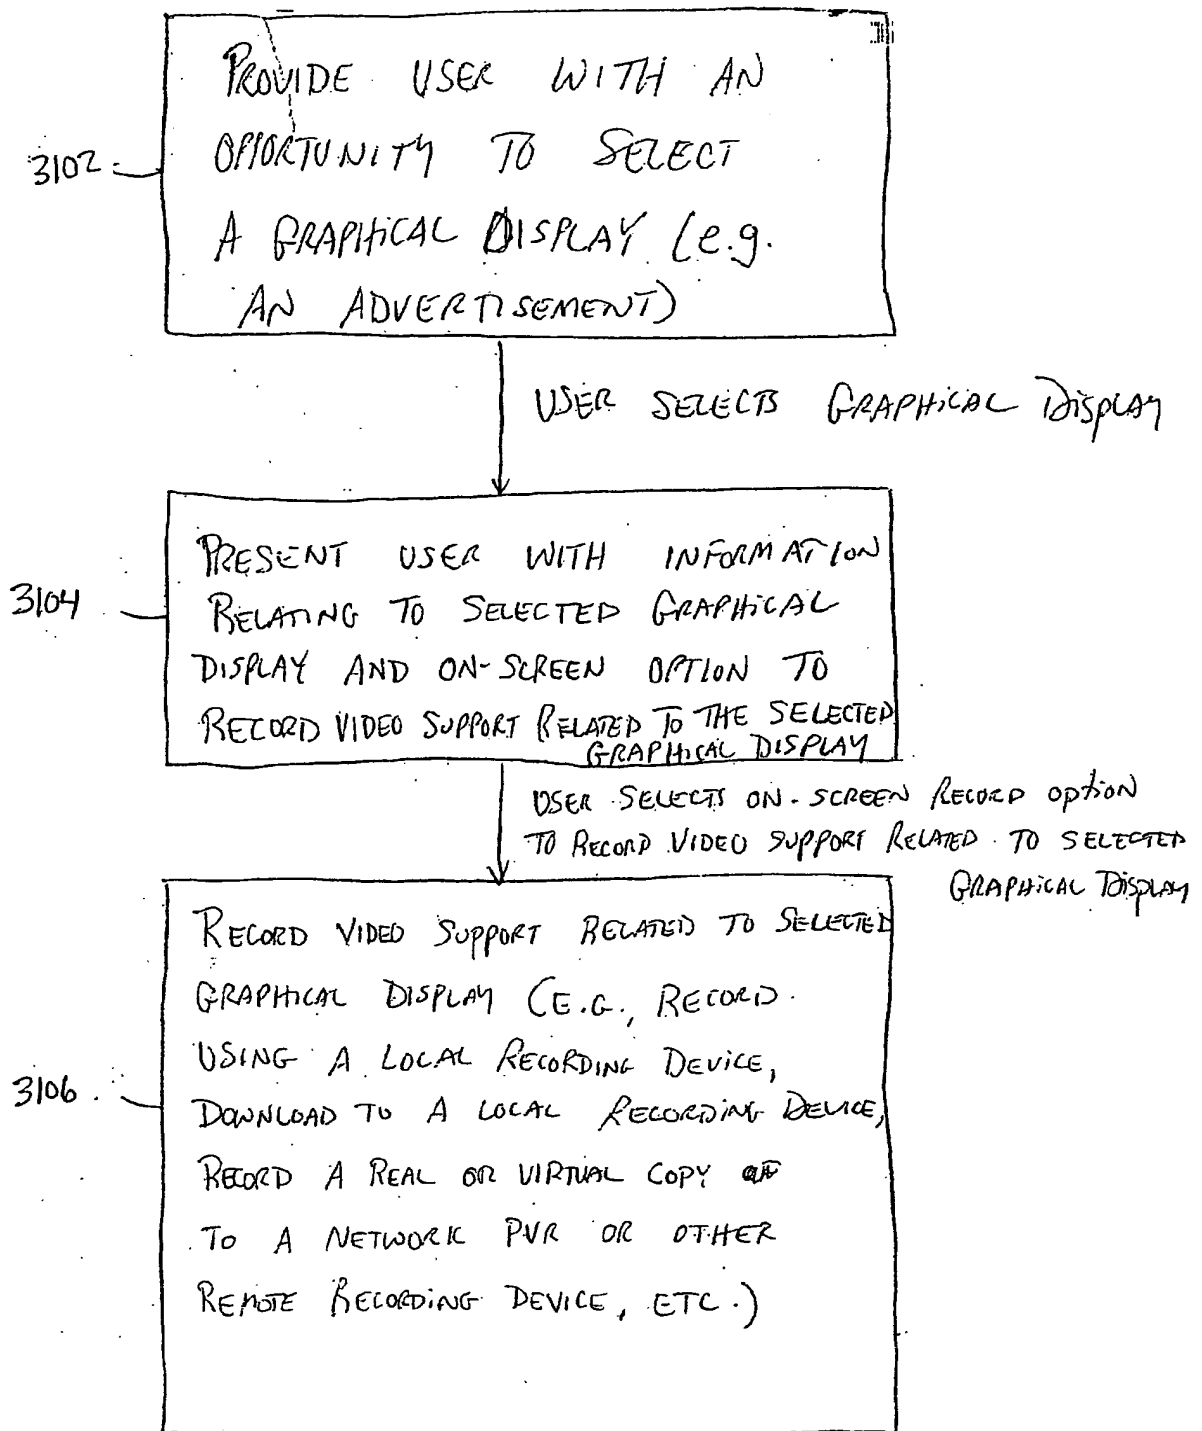 PROVIDE USER WITH AN
OPPORTUNITY TO SELECT
A GRAPHICAL DISPLAY (e.g.
AN ADVERTISEMENT)
3102
USER SELECTS GRAPHICAL DISPLAY
PRESENT USER WITH INFORMATION
RELATING TO SELECTED GRAPHICAL
DISPLAY AND ON-SCREEN OPTION TO
RECORD VIDEO SUPPORT RELATED TO THE SELECTED
GRAPHICAL DISPLAY
3104
USER SELECTS ON-SCREEN RECORD OPTION
TO RECORD VIDEO SUPPORT RELATED TO SELECTED
GRAPHICAL DISPLAY
RECORD VIDEO SUPPORT RELATED TO SELECTED
GRAPHICAL DISPLAY (E.G., RECORD
USING A LOCAL RECORDING DEVICE,
DOWNLOAD TO A LOCAL RECORDING DEVICE,
RECORD A REAL OR VIRTUAL COPY
TO A NETWORK PVR OR OTHER
REMOTE RECORDING DEVICE, ETC.)
3106